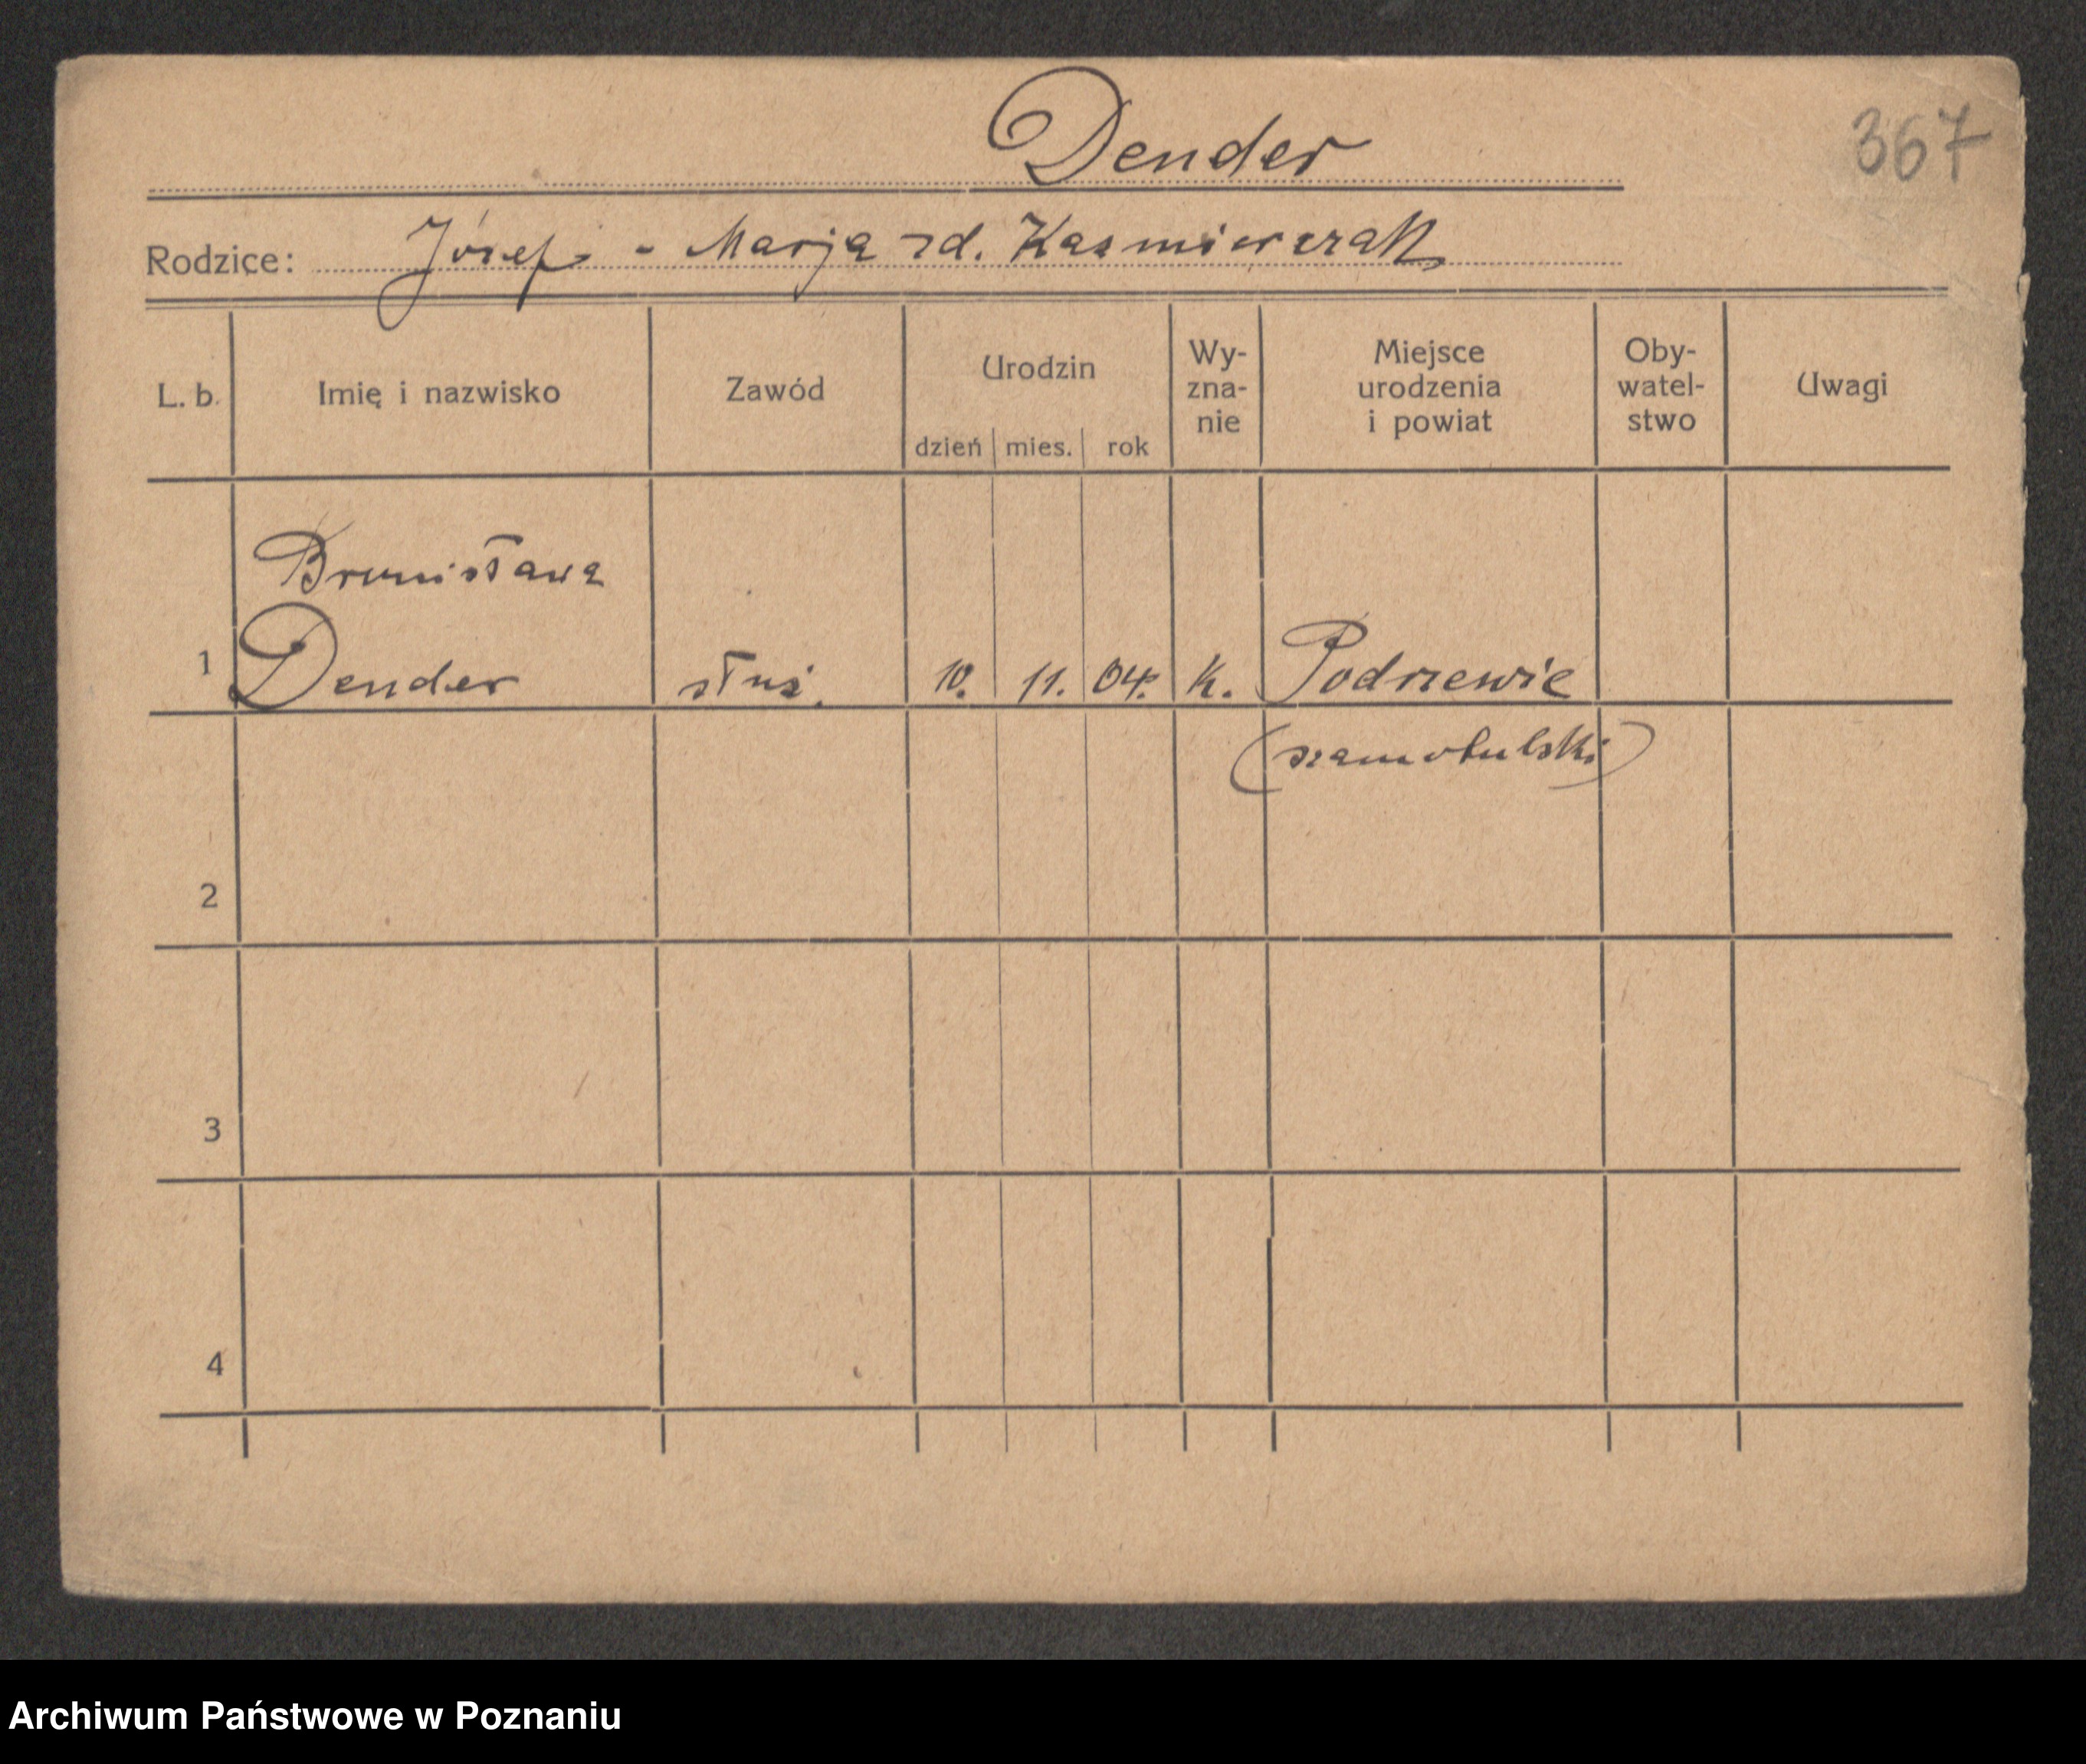 Dender
367
Rodzice: Józef - Marja zd. Kaźmierczak
L. b. Imię i nazwisko Zawód Urodzin dzień mies. rok Wy-zna-nie Miejsce urodzenia i powiat Oby-watel-stwo Uwagi
Bronisława
1 Dender służ. 10. 11. 04. k. Podrzewie
(szamotulski)
2
3
4
Archiwum Państwowe w Poznaniu